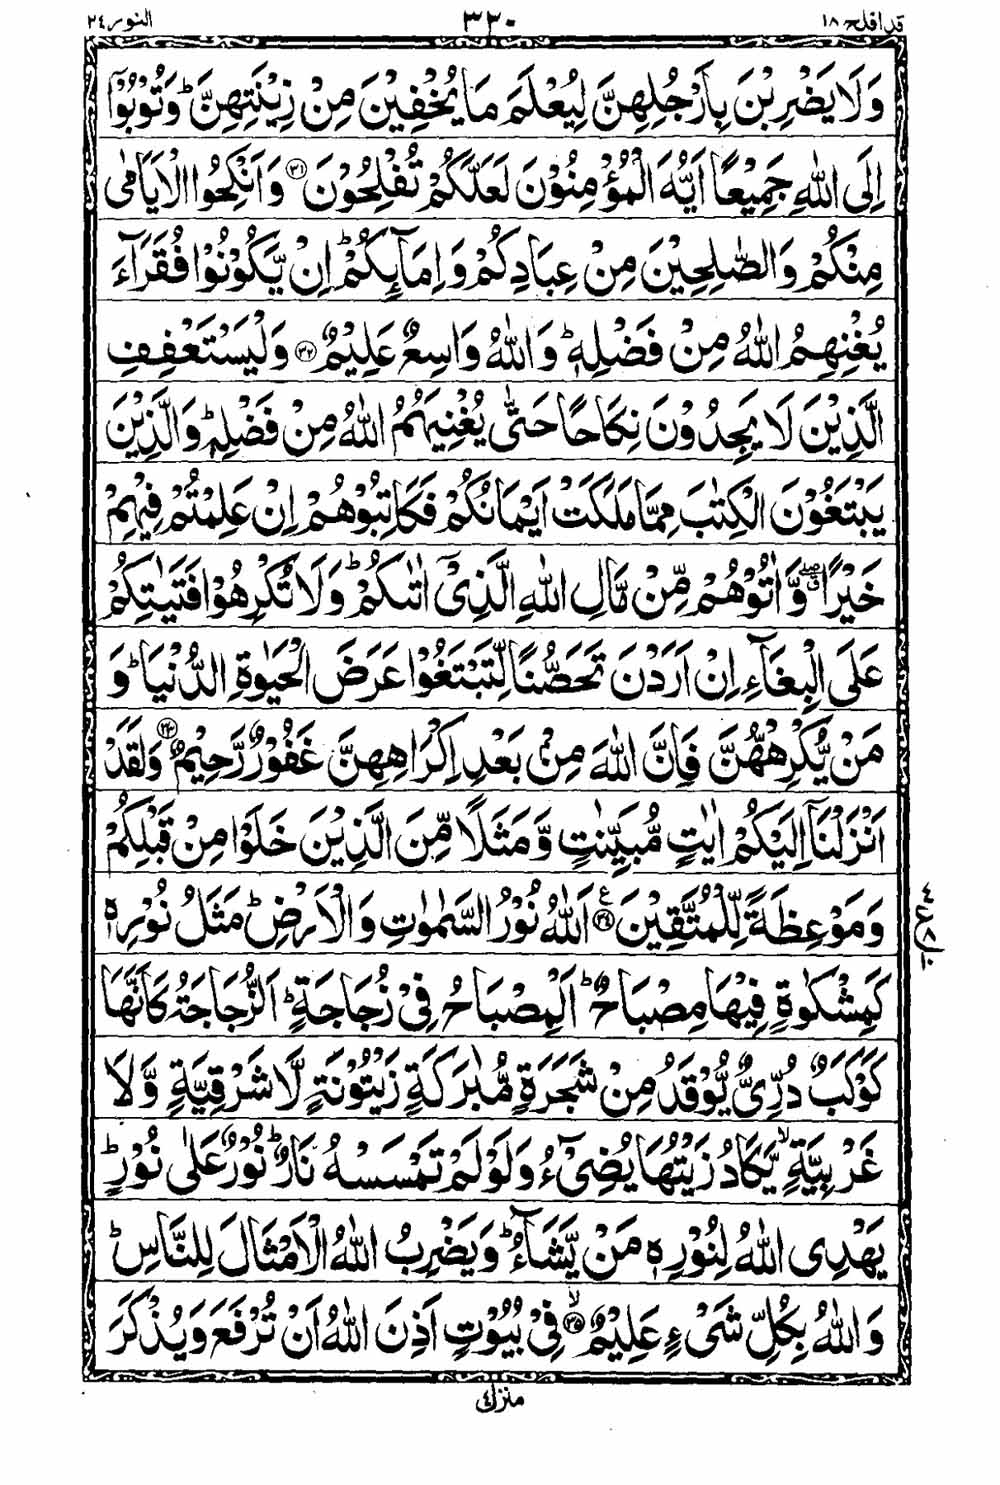 قد افلح ١٨ ٣٢٠ النور ٢٤
وَلَا يَضْرِبْنَ بِاَرْجُلِهِنَّ لِيُعْلَمَ مَا يُخْفِيْنَ مِنْ زِيْنَتِهِنَّ ؕ وَتُوْبُوْۤا
اِلَى اللّٰهِ جَمِيْعًا اَيُّهَ الْمُؤْمِنُوْنَ لَعَلَّكُمْ تُفْلِحُوْنَ ۝۳۱ وَاَنْكِحُوا الْاَيَامٰى
مِنْكُمْ وَالصّٰلِحِيْنَ مِنْ عِبَادِكُمْ وَاِمَآئِكُمْ ؕ اِنْ يَّكُوْنُوْا فُقَرَآءَ
يُغْنِهِمُ اللّٰهُ مِنْ فَضْلِهٖ ؕ وَاللّٰهُ وَاسِعٌ عَلِيْمٌ ۝۳۲ وَلْيَسْتَعْفِفِ
الَّذِيْنَ لَا يَجِدُوْنَ نِكَاحًا حَتّٰى يُغْنِيَهُمُ اللّٰهُ مِنْ فَضْلِهٖ ؕ وَالَّذِيْنَ
يَبْتَغُوْنَ الْكِتٰبَ مِمَّا مَلَكَتْ اَيْمَانُكُمْ فَكَاتِبُوْهُمْ اِنْ عَلِمْتُمْ فِيْهِمْ
خَيْرًا ۖق وَّاٰتُوْهُمْ مِّنْ مَّالِ اللّٰهِ الَّذِيْۤ اٰتٰىكُمْ ؕ وَلَا تُكْرِهُوْا فَتَيٰتِكُمْ
عَلَى الْبِغَآءِ اِنْ اَرَدْنَ تَحَصُّنًا لِّتَبْتَغُوْا عَرَضَ الْحَيٰوةِ الدُّنْيَا ؕ وَ
مَنْ يُّكْرِهْهُّنَّ فَاِنَّ اللّٰهَ مِنْۢ بَعْدِ اِكْرَاهِهِنَّ غَفُوْرٌ رَّحِيْمٌ ۝۳۳ وَلَقَدْ
اَنْزَلْنَاۤ اِلَيْكُمْ اٰيٰتٍ مُّبَيِّنٰتٍ وَّمَثَلًا مِّنَ الَّذِيْنَ خَلَوْا مِنْ قَبْلِكُمْ
وَمَوْعِظَةً لِّلْمُتَّقِيْنَ ۝۳۴ ع اَللّٰهُ نُوْرُ السَّمٰوٰتِ وَالْاَرْضِ ؕ مَثَلُ نُوْرِهٖ
كَمِشْكٰوةٍ فِيْهَا مِصْبَاحٌ ؕ اَلْمِصْبَاحُ فِيْ زُجَاجَةٍ ؕ اَلزُّجَاجَةُ كَاَنَّهَا
كَوْكَبٌ دُرِّيٌّ يُّوْقَدُ مِنْ شَجَرَةٍ مُّبٰرَكَةٍ زَيْتُوْنَةٍ لَّا شَرْقِيَّةٍ وَّلَا
غَرْبِيَّةٍ ۙ يَّكَادُ زَيْتُهَا يُضِيْٓءُ وَلَوْ لَمْ تَمْسَسْهُ نَارٌ ؕ نُوْرٌ عَلٰى نُوْرٍ ؕ
يَهْدِى اللّٰهُ لِنُوْرِهٖ مَنْ يَّشَآءُ ؕ وَيَضْرِبُ اللّٰهُ الْاَمْثَالَ لِلنَّاسِ ؕ
وَاللّٰهُ بِكُلِّ شَىْءٍ عَلِيْمٌ ۝۳۵ ۙ فِيْ بُيُوْتٍ اَذِنَ اللّٰهُ اَنْ تُرْفَعَ وَيُذْكَرَ
منزل ٤